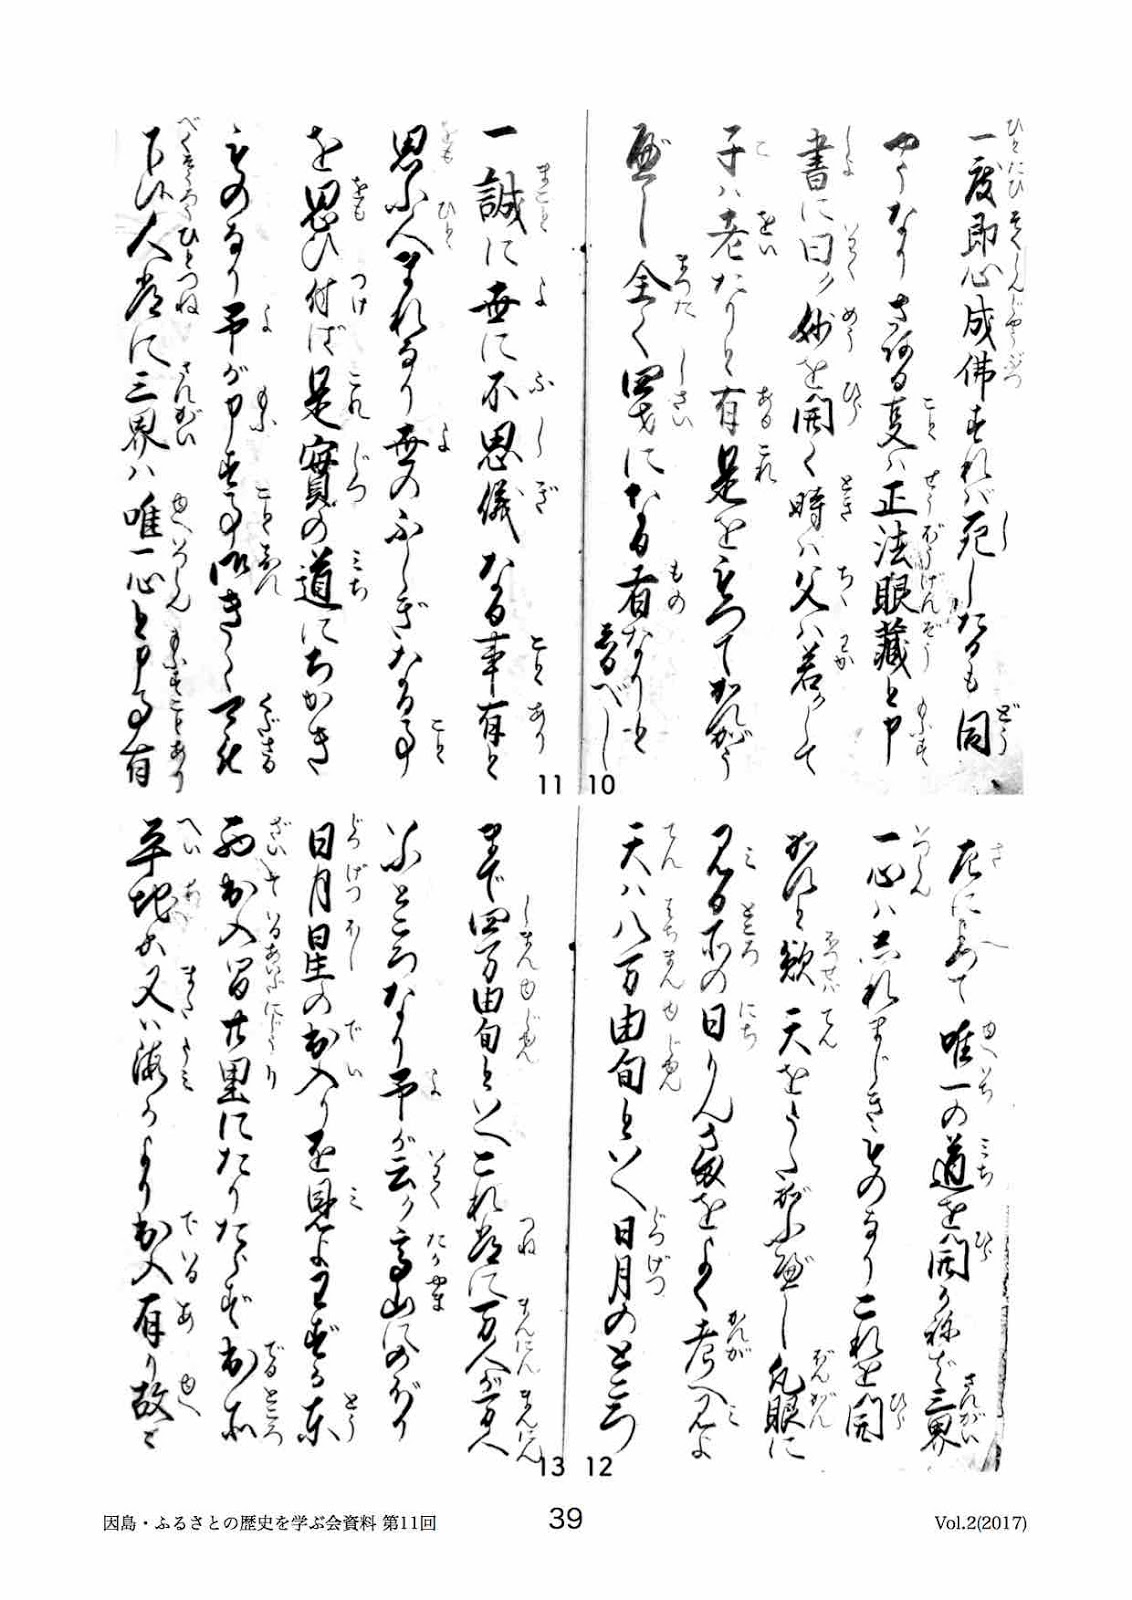 一度即心成佛すれバ死したるも同
やうなりさある事ハ正法眼藏と申
書に曰ク妙を開く時ハ父ハ若クして
子ハ老たりと有是をもつてかんがう
べし全く愚になる者なりと
習べし
10
一誠に世に不思儀なる事有と
思ふ人まれなり世のふしぎなる事
を思ひ付ば是實の道にちかき
ものなり予が申する事御きゝ下され
べく候人常に三界ハ唯一心と申事有
11
左によつて唯一の道を開かねば三界
一心ハしれまじきものなりこれを開
かんと欲天をうたがふべし凡眼に
見る所の日りんさまをよく考へ見よ
天ハ八万由旬といへ日月のところ
12
まで四万由旬といへこれ常に万人が万人
いふところなり予が云ク高山にのぼり
日月星の出入りを見よわずか東
西出入間廿里にたりたらず出所
平地か又ハ海より出入有り故に
13
因島・ふるさとの歴史を学ぶ会資料 第11回
39
Vol.2(2017)